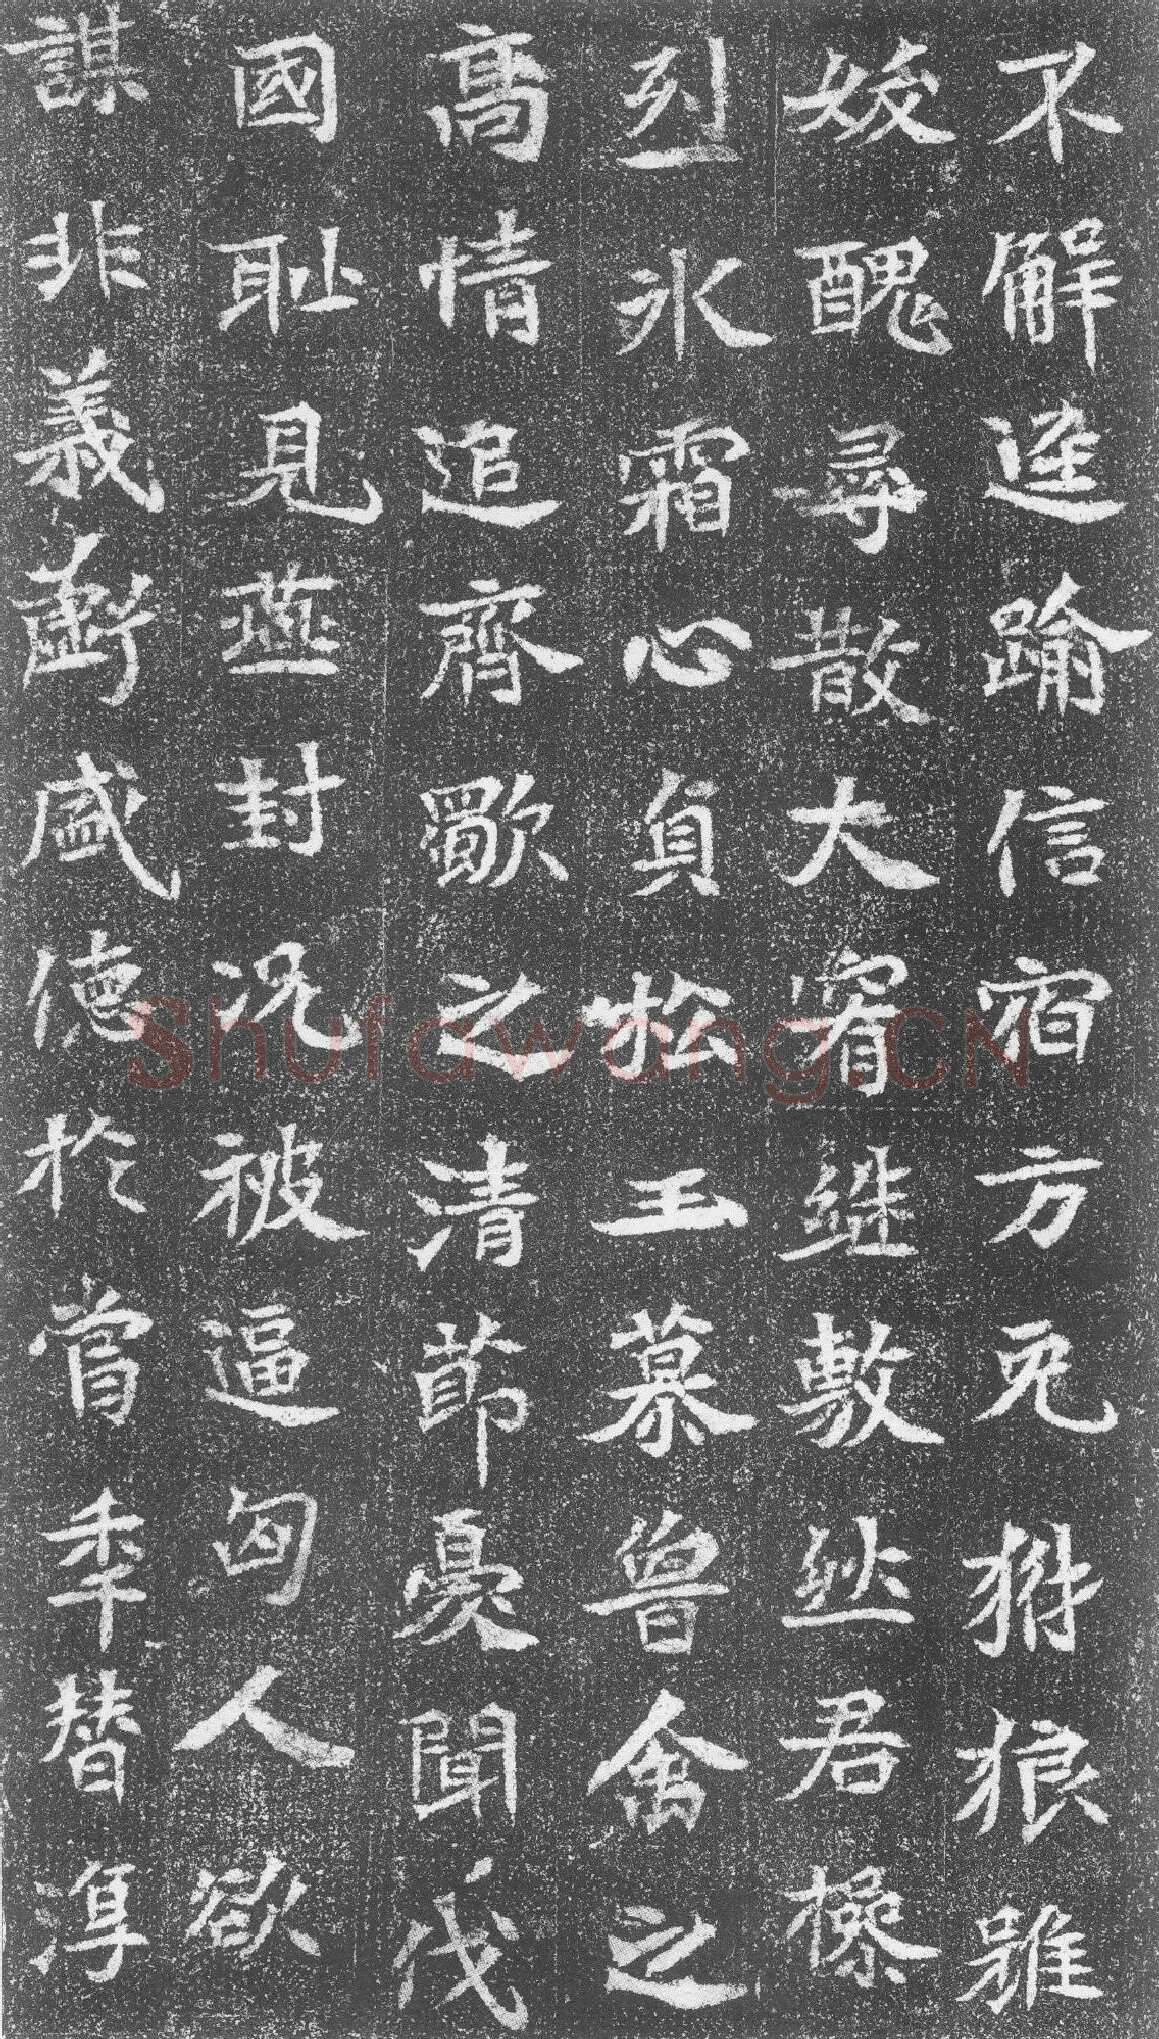 不解踰信宿方免狼雖
姣醜尋散大继敷然君操
烈氷霜心負松玉慕魯禽之
高情追齊歜之清節憂聞伐
國恥見燕封況被逼匈人欲
謀非義虧盛德於當年替淳
Shufawang.CN